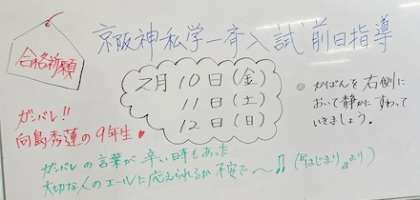 京阪神私学一斉入試 前日指導
合格祈願
2月10日(金)
11日(土)
12日(日)
◎ かばんを右側に
おいて静かに すわって
いきましょう。
ガンバレ!!
向島秀蓮の9年生
ガンバレの言葉が辛い時もあった
大切な人のエールに応えられるか不安で〜♫(はじまり より)